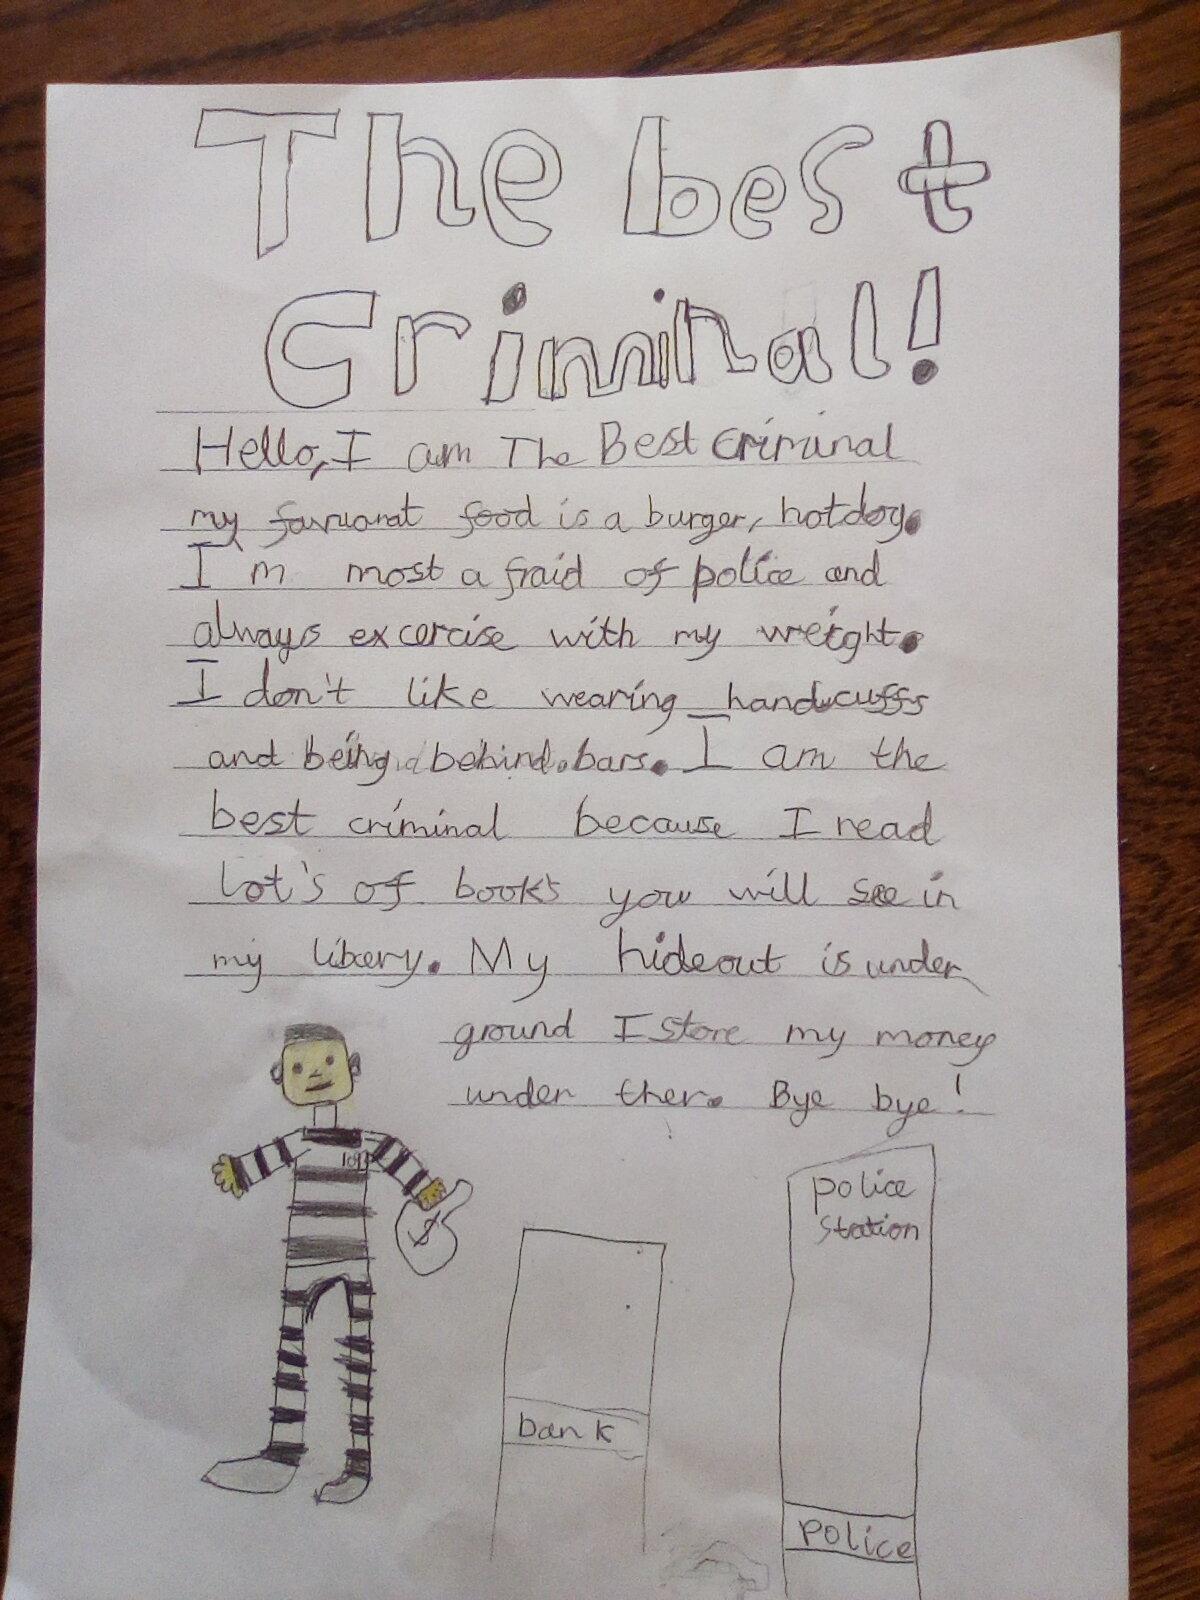 The best
Criminal!
Hello, I am The Best criminal
my favuorat food is a burger, hotdog.
I'm most afraid of police and
always excercise with my weight.
I don't like wearing handcuffs
and being behind.bars. I am the
best criminal because I read
lot's of book's you will see in
my libery. My hideout is under
ground I store my money
under ther. Bye bye!
police
station
$
bank
police